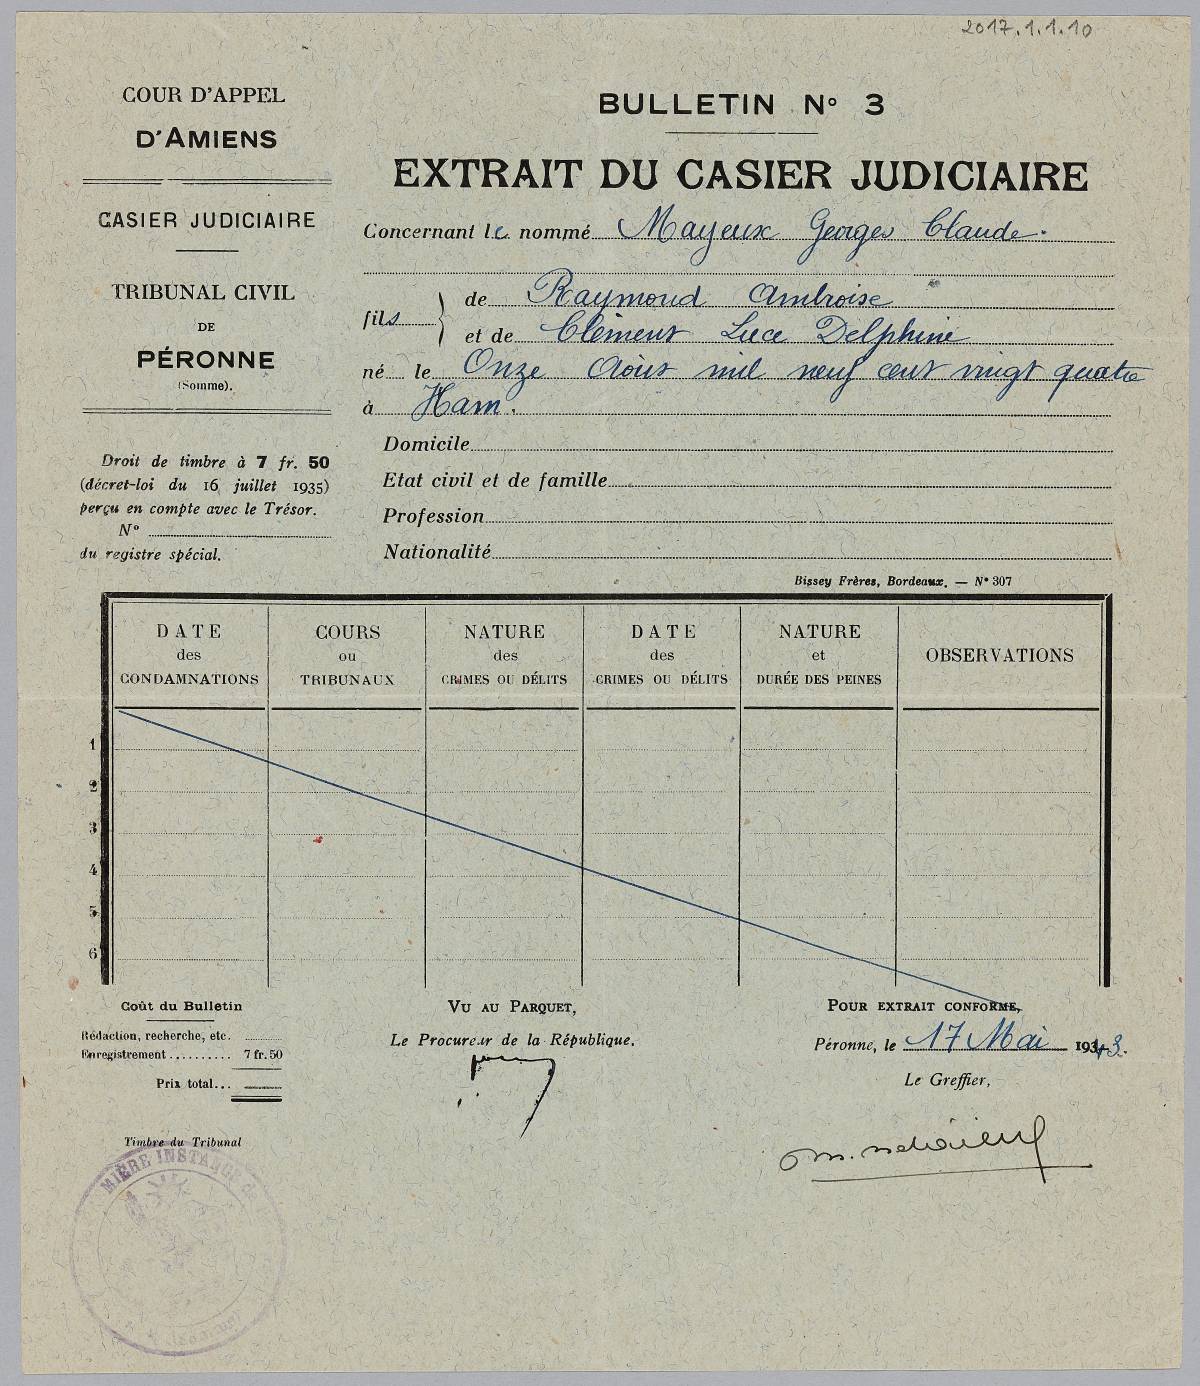 2017.1.1.10
COUR D'APPEL
D'AMIENS
CASIER JUDICIAIRE
TRIBUNAL CIVIL
DE
PÉRONNE
(Somme).
Droit de timbre à 7 fr. 50
(décret-loi du 16 juillet 1935)
perçu en compte avec le Trésor.
N°
du registre spécial.
BULLETIN N° 3
EXTRAIT DU CASIER JUDICIAIRE
Concernant le nommé Mayeux Georges Claude.
fils de Raymond Ambroise
et de Clément Luce Delphine
né le Onze Août mil neuf cent vingt quatre
à Ham.
Domicile
Etat civil et de famille
Profession
Nationalité
Bissey Frères, Bordeaux. — N° 307
DATE
des
CONDAMNATIONS
COURS
ou
TRIBUNAUX
NATURE
des
CRIMES OU DÉLITS
DATE
des
CRIMES OU DÉLITS
NATURE
et
DURÉE DES PEINES
OBSERVATIONS
1
2
3
4
5
6
Coût du Bulletin
Rédaction, recherche, etc.
Enregistrement .......... 7 fr. 50
Prix total...
Timbre du Tribunal
MIÈRE INSTANCE de
VU AU PARQUET,
Le Procureur de la République.
POUR EXTRAIT CONFORME,
Péronne, le 17 Mai 1943.
Le Greffier,